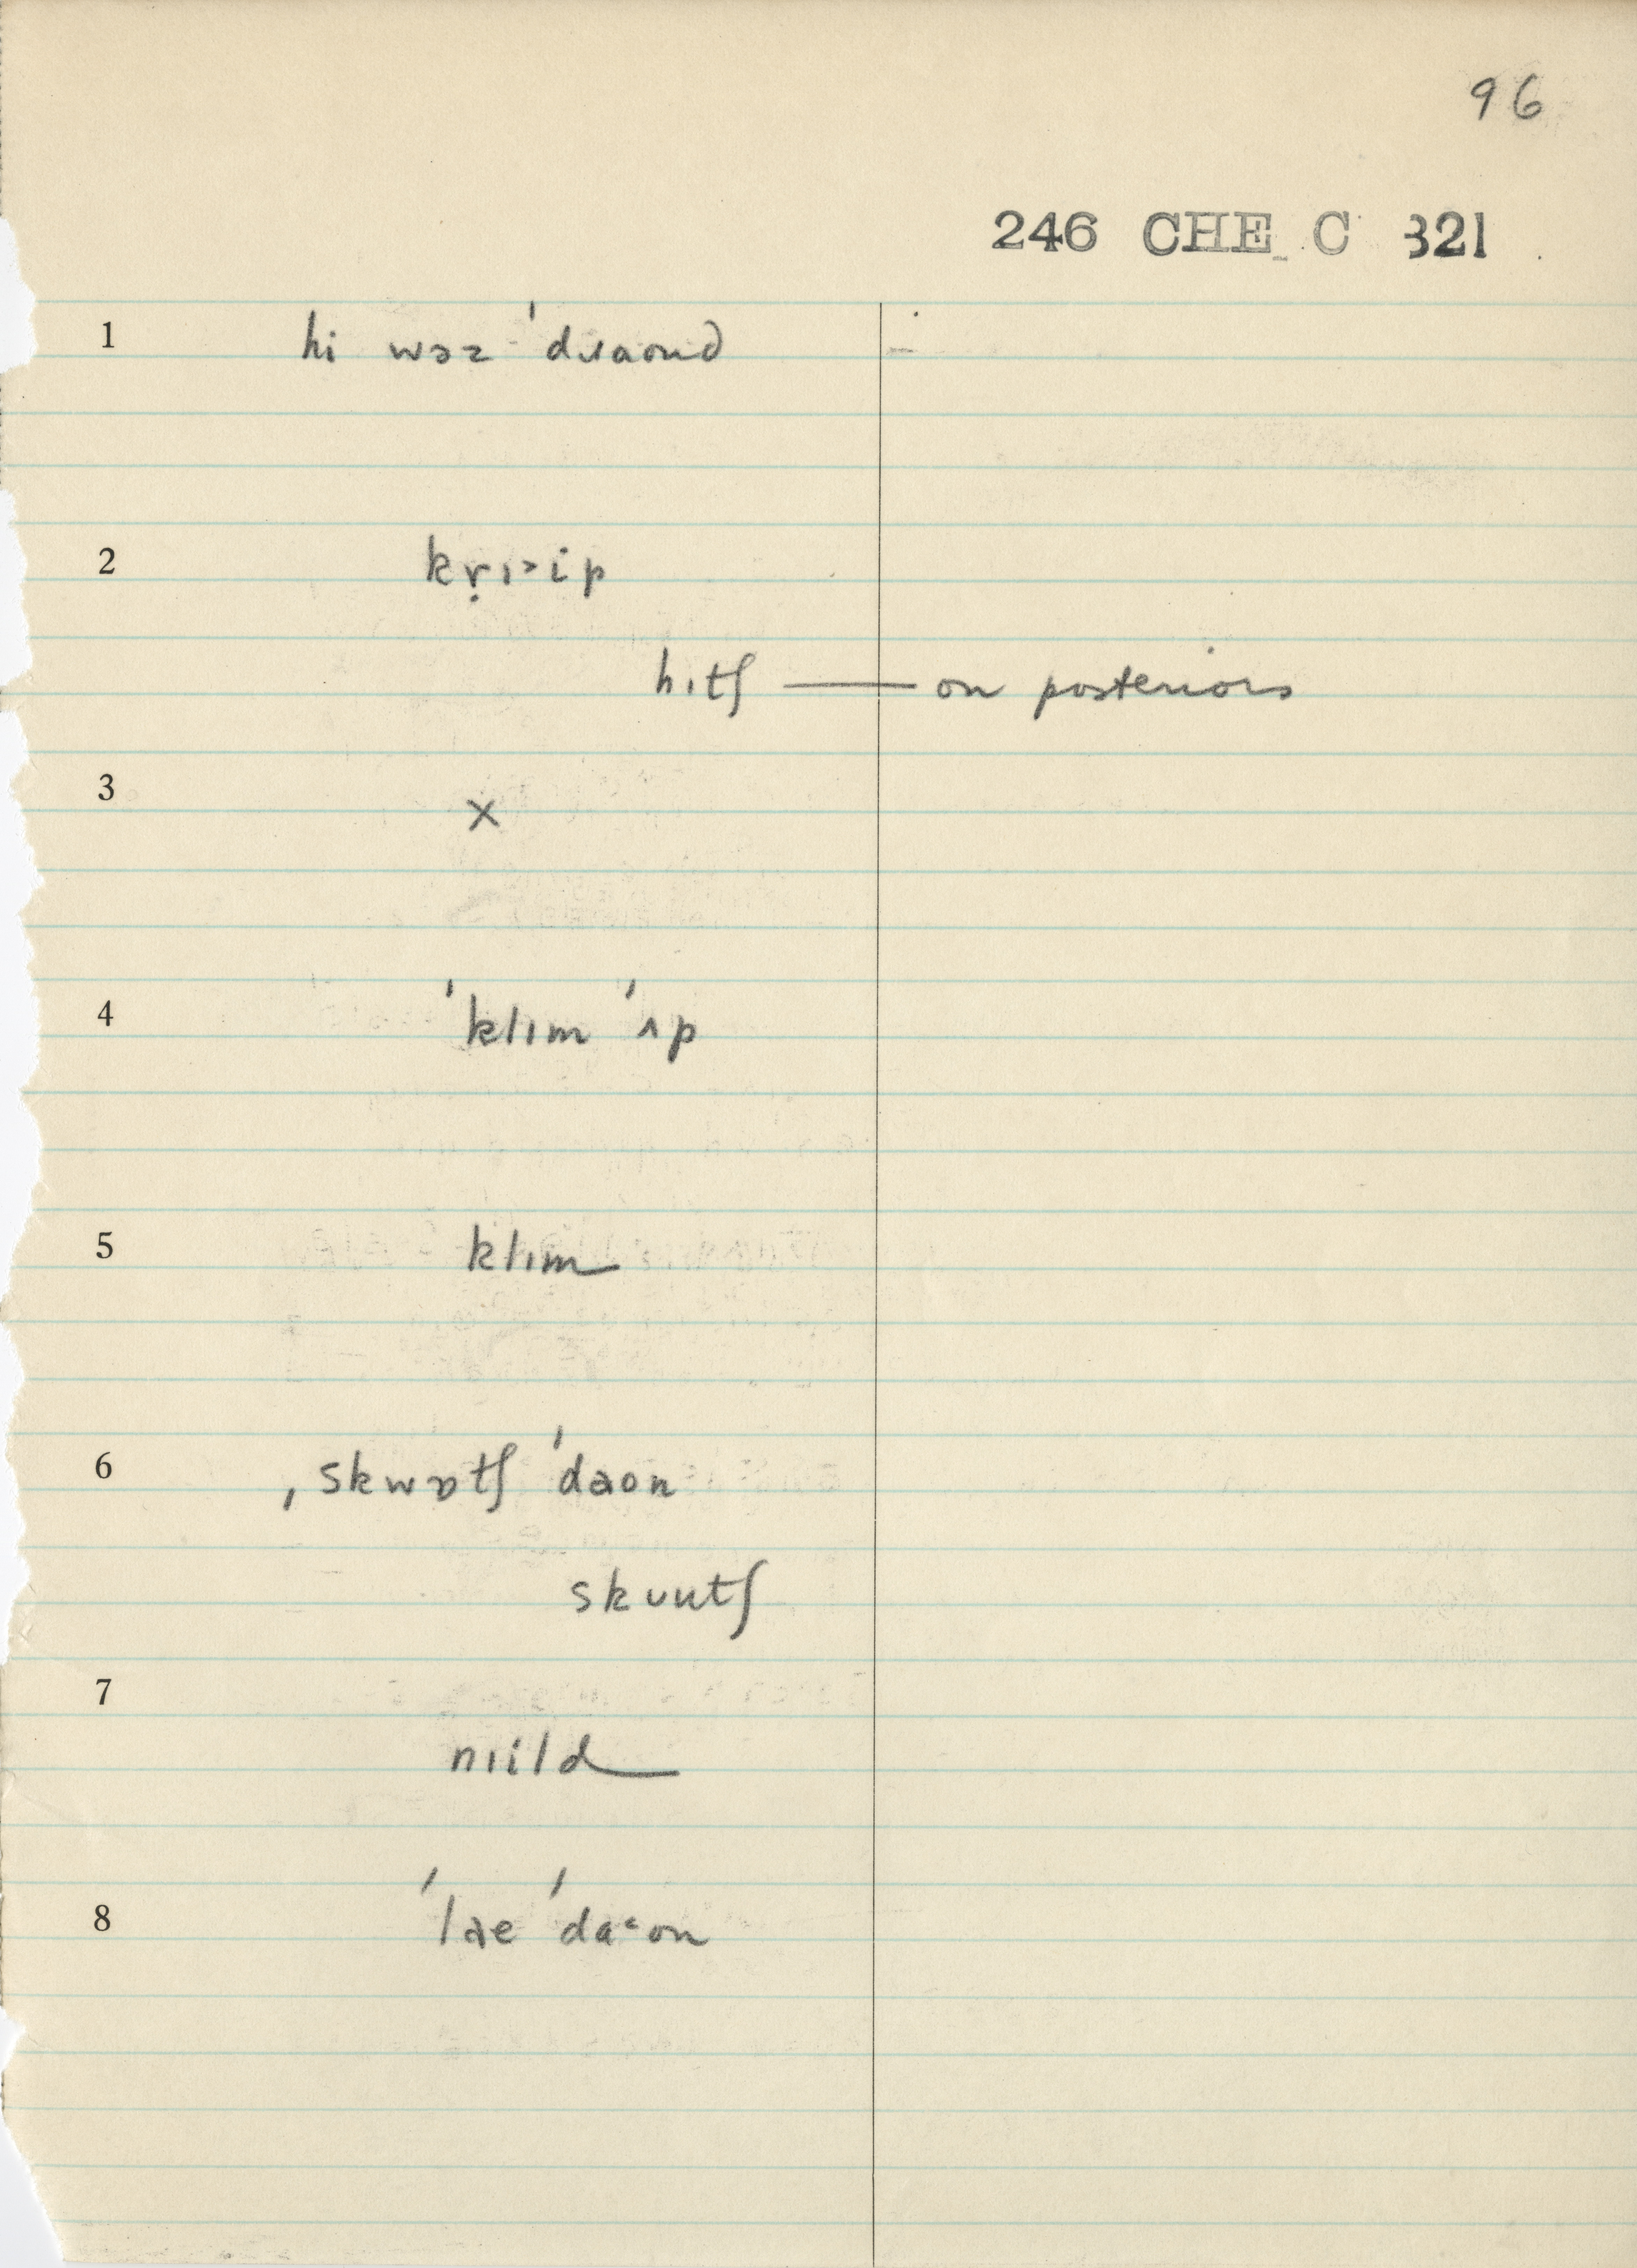 96
246 CHE C 321
1 hi wəz ˈdɹaʊnd
2 kṛɪ˃ip
hɪtʃ — on posteriors
3 ×
4 ˈklɪm ˈʌp
5 klɪm
6 ˌskwɒtʃ ˈdaʊn
skuutʃ
7 nɪild
8 ˈlae ˈda˂ʊn